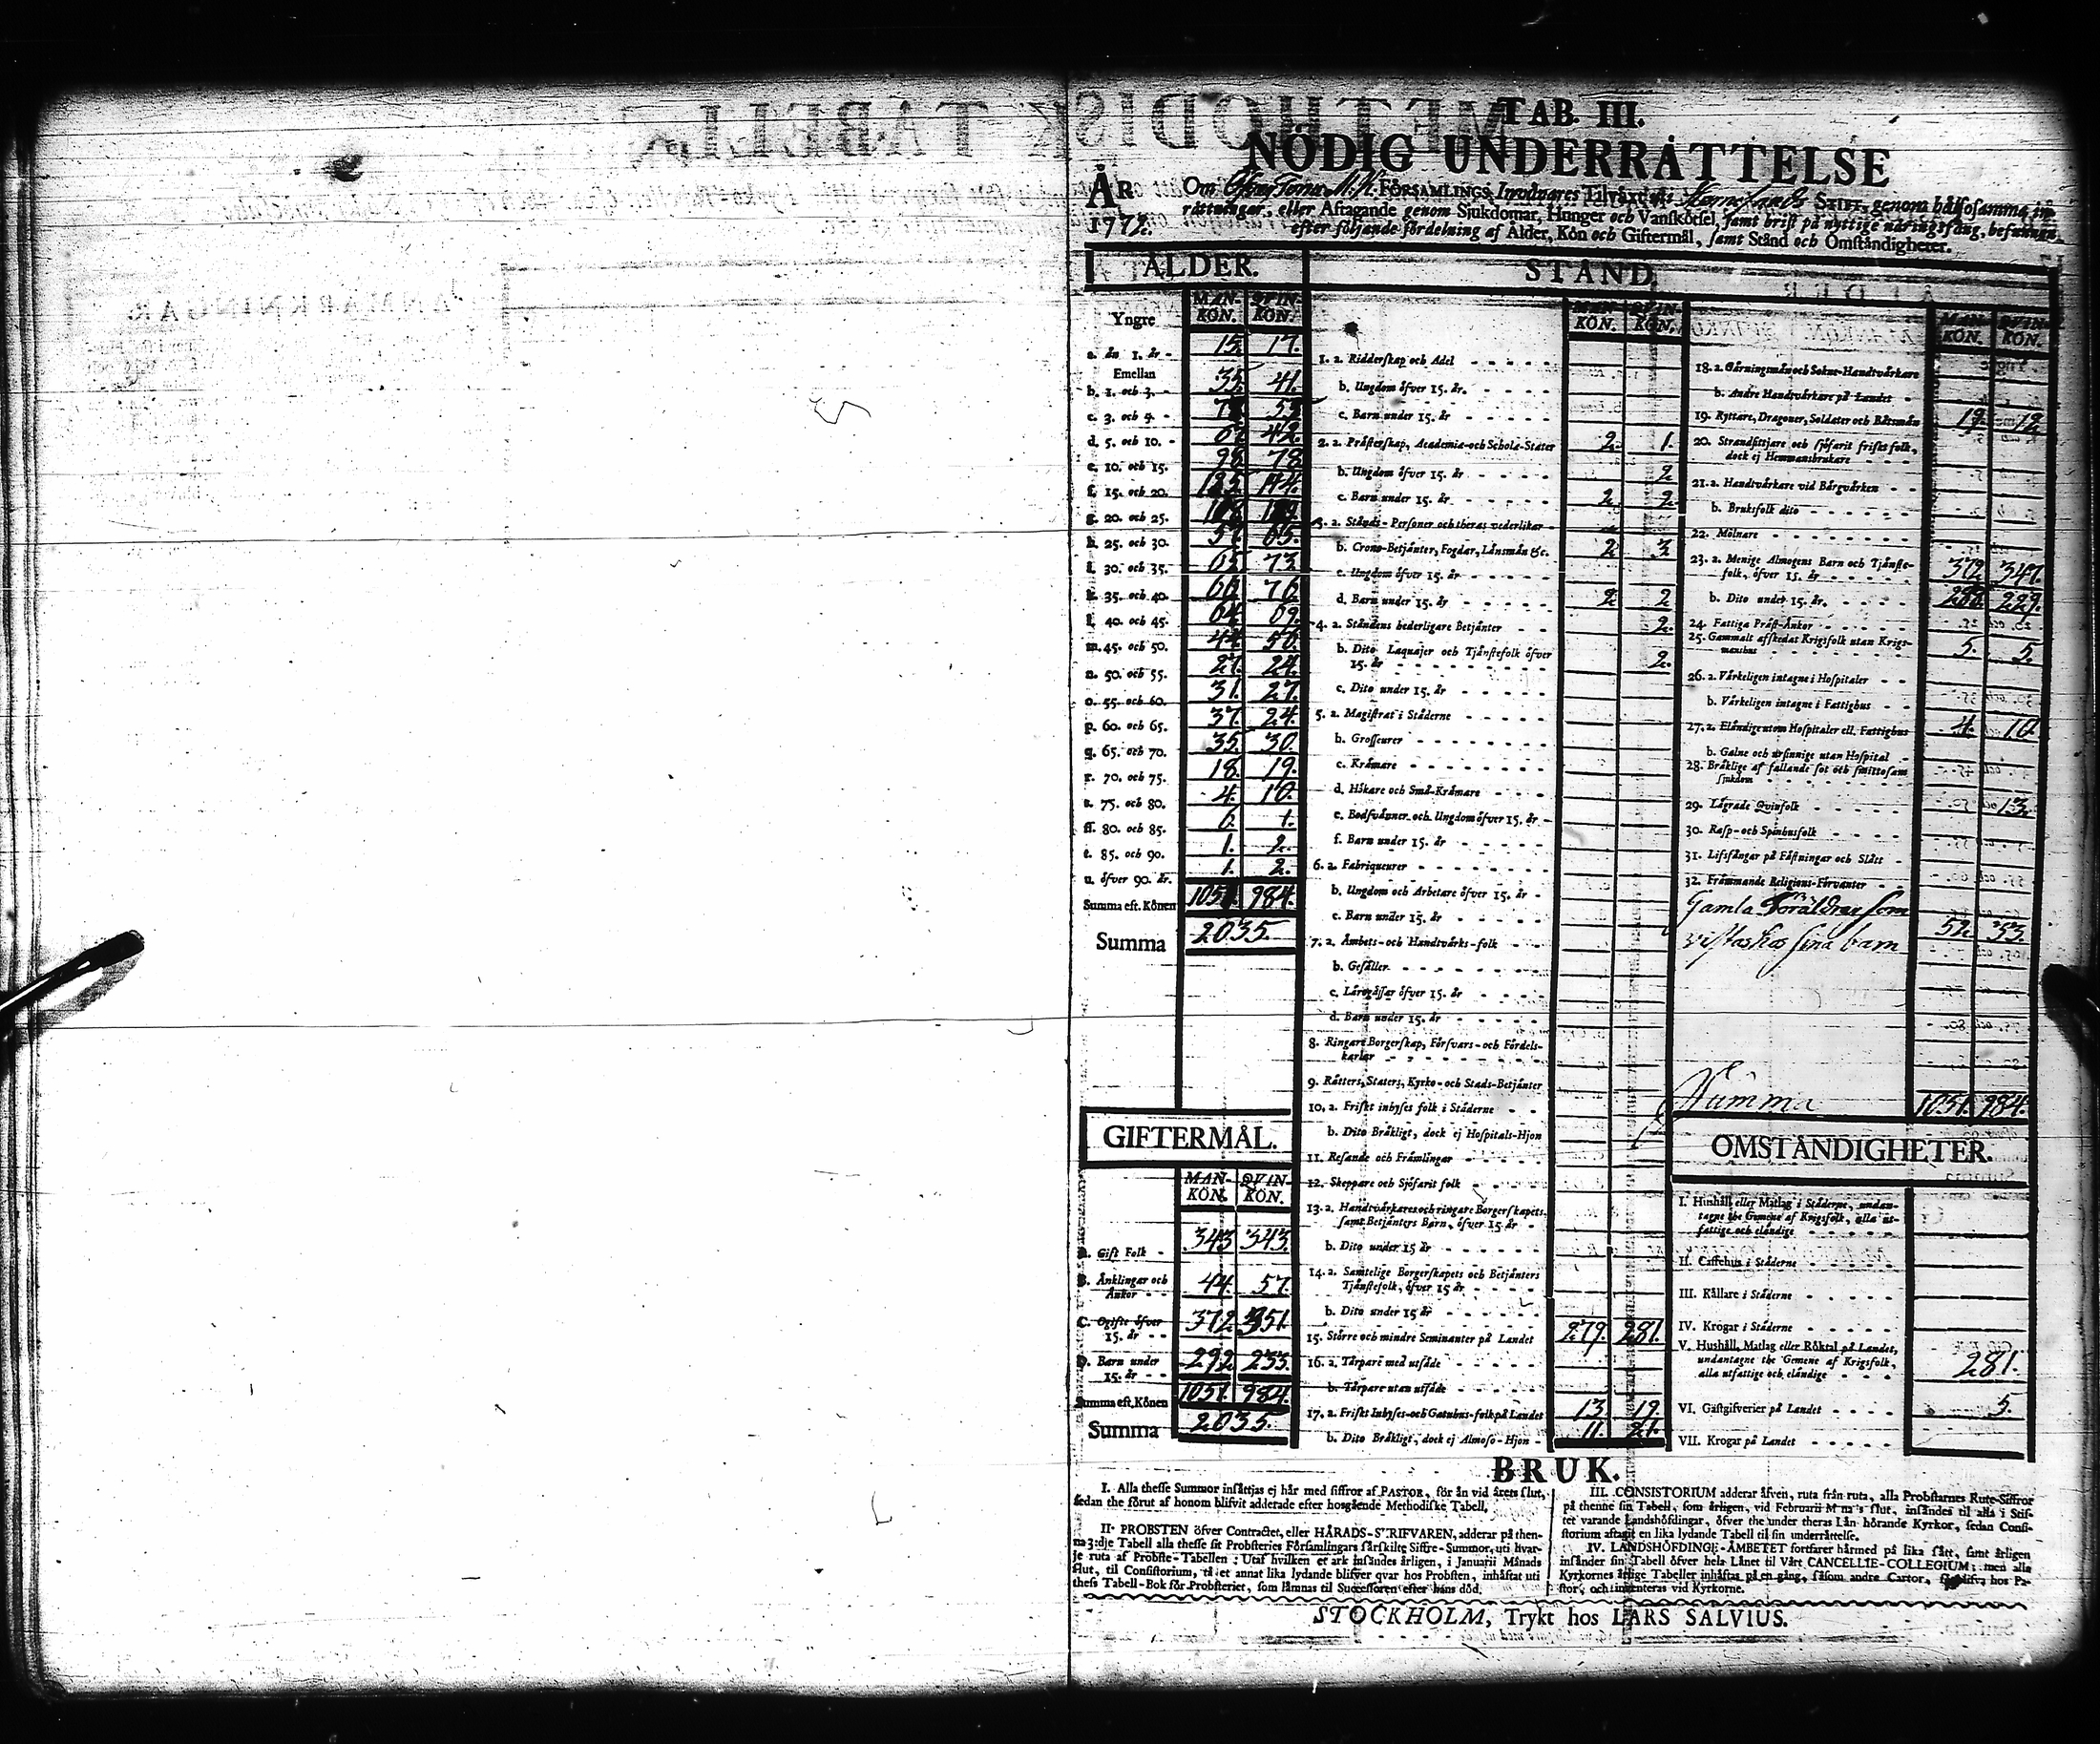 TAB. III.
NÖDIG UNDERRÅTTELSE
ÅR 1772.
Om M. K. FÖRSAMLINGS Inwånares Tilväxt i STIFT, genom hålsosamma in-
råttningar, eller Aftagande genom Sjukdomar, Hunger och Vanskötsel, samt brist på nyttige näringsfång, befunnen
efter följande fördelning af Ålder, Kön och Giftermål, samt Stånd och Omståndigheter.
ÅLDER.
MAN-KÖN. QVIN-KÖN.
Yngre
a. ån 1. år - 15. 17.
Emellan
b. 1. och 3. - 35. 41.
c. 3. och 5. -
d. 5. och 10. - 42.
e. 10. och 15. 98. 78
f. 15. och 20. 144.
g. 20. och 25.
h. 25. och 30. 65.
i. 30. och 35. 73
k. 35. och 40. 66. 76.
l. 40. och 45. 64. 69.
m. 45. och 50. 44. 56.
n. 50. och 55. 27. 24.
o. 55. och 60. 31. 27.
p. 60. och 65. 37. 24.
q. 65. och 70. 35. 30.
r. 70. och 75. 18. 19.
s. 75. och 80. 4. 10.
ss. 80. och 85. 6. 1.
t. 85. och 90. 1. 2.
u. öfver 90. år. 1. 2.
Summa eft. Könen 1051. 984.
Summa 2035.
GIFTERMÅL.
MAN-KÖN. QVIN-KÖN.
A. Gift Folk - 343 343.
B. Ånklingar och Ånkor - - 44. 57.
C. Ogifte öfver 15. år - - 372. 351.
D. Barn under 15. år - - 292. 233.
Summa eft. Könen 1051. 984.
Summa 2035.
STÅND.
MAN-KÖN. QVIN-KÖN.
1. a. Ridderskap och Adel
b. Ungdom öfver 15. år.
c. Barn under 15. år
2. a. Pråsterskap, Academia- och Schola-Stater 2. 1.
b. Ungdom öfver 15. år 2
c. Barn under 15. år 2 2
3. a. Stånds-Personer och theras vederlikar
b. Crono-Betjånter, Fogdar, Lånsmån &c. 2 3
c. Ungdom öfver 15. år
d. Barn under 15. år 2 2
4. a. Ståndens hederligare Betjånter 2.
b. Dito Laquajer och Tjånstefolk öfver
15. år 2.
c. Dito under 15. år
5. a. Magistrat i Ståderne
b. Grosseurer
c. Kråmare
d. Hökare och Små-Kråmare
e. Bodsvånner och Ungdom öfver 15. år
f. Barn under 15. år
6. a. Fabriqueurer
b. Ungdom och Arbetare öfver 15. år
c. Barn under 15. år
7. a. Åmbets- och Handtvårks-folk
b. Gesåller
c. Lårogåssar öfver 15. år
d. Barn under 15. år
8. Ringare Borgerskap, Försvars- och Fördels-
karlar
9. Råtters, Staters, Kyrko- och Stads-Betjånter
10. a. Friskt inhyses folk i Ståderne
b. Dito Bråkligt, dock ej Hospitals-Hjon
11. Resande och Fråmlingar
12. Skeppare och Sjöfarit folk
13. a. Handtvårkares och ringare Borgerskapets
samt Betjånters Barn, öfver 15 år
b. Dito under 15 år
14. a. Samtelige Borgerskapets och Betjånters
Tjånstefolk, öfver 15 år
b. Dito under 15 år
15. Större och mindre Seminanter på Landet 279. 281.
16. a. Tårpare med utsåde
b. Tårpare utan utsåde
17. a. Friskt Inhyses- och Gatuhus-folk på Landet 13 19.
b. Dito Bråkligt, dock ej Almoso-Hjon 11. 21.
MAN-KÖN. QVIN-KÖN.
18. a. Gårningsmån och Sokne-Handtvårkare
b. Andre Handtvårkare på Landet
19. Ryttare, Dragoner, Soldater och Båtsmån 19. 12
20. Strandsittjare och sjöfarit friskt folk,
dock ej Hemmansbrukare
21. a. Handtvårkare vid Bårgvårken
b. Bruksfolk dito
22. Mölnare
23. a. Menige Almogens Barn och Tjånste-
folk, öfver 15. år 372 347.
b. Dito under 15. år. 288. 229.
24. Fattiga Pråst-Ånkor
25. Gammalt afskedat Krigsfolk utan Krigs-
manshus 5. 5.
26. a. Vårkeligen intagne i Hospitaler
b. Vårkeligen intagne i Fattighus
27. a. Elåndige utom Hospitaler ell. Fattighus 4. 10.
b. Galne och ursinnige utan Hospital
28. Bråklige af fallande sot och smittosam
sjukdom
29. Lågrade Qvinfolk 13.
30. Rasp- och Spinhusfolk
31. Lifsfångar på Fåstningar och Slått
32. Fråmmande Religions-Förvanter
Gamla Föräldrar som
vistas hos sina barn 52. 33.
Summa 1051. 984.
OMSTÅNDIGHETER.
I. Hushåll eller Matlag i Ståderne, undan-
tagne the Gemene af Krigsfolk, alla ut-
fattige och elåndige
II. Caffehus i Ståderne
III. Kållare i Ståderne
IV. Krogar i Ståderne
V. Hushåll, Matlag eller Röktal på Landet,
undantagne the Gemene af Krigsfolk,
alla utfattige och elåndige 281.
VI. Gåstgifverier på Landet 5.
VII. Krogar på Landet
BRUK.
I. Alla thesse Summor insåttjas ej hår med siffror af PASTOR, för ån vid årets slut,
sedan the förut af honom blifvit adderade efter hosgående Methodiske Tabell.
II. PROBSTEN öfver Contractet, eller HÅRADS-SKRIFVAREN, adderar på then-
na 3:dje Tabell alla thesse sit Probsteries Församlingars sårskilte Siffre-Summor, uti hvar-
je ruta af Probste-Tabellen: Utaf hvilken et ark insåndes årligen, i Januarii Månads
slut, til Consistorium, et annat lika lydande blifver qvar hos Probsten, inhåftat uti
thess Tabell-Bok för Probsteriet, som låmnas til Successoren efter hans död.
III. CONSISTORIUM adderar åfven, ruta från ruta, alla Probstarnes Rute-Siffror
på thenne sin Tabell, som årligen, vid Februarii slut, insåndes til alla i Stif-
tet varande Landshöfdingar, öfver the under theras Lån hörande Kyrkor, sedan Consi-
storium aftagit en lika lydande Tabell til sin underråttelse.
IV. LANDSHÖFDINGE-ÅMBETET fortfarer hårmed på lika sått, samt årligen
insånder sin Tabell öfver hela Lånet til Vårt CANCELLIE-COLLEGIUM: men alla
Kyrkornes årlige Tabeller inhåftas på en gång, såsom andre Cartor, hos Pa-
stor, och inventeras vid Kyrkorne.
STOCKHOLM, Trykt hos LARS SALVIUS.